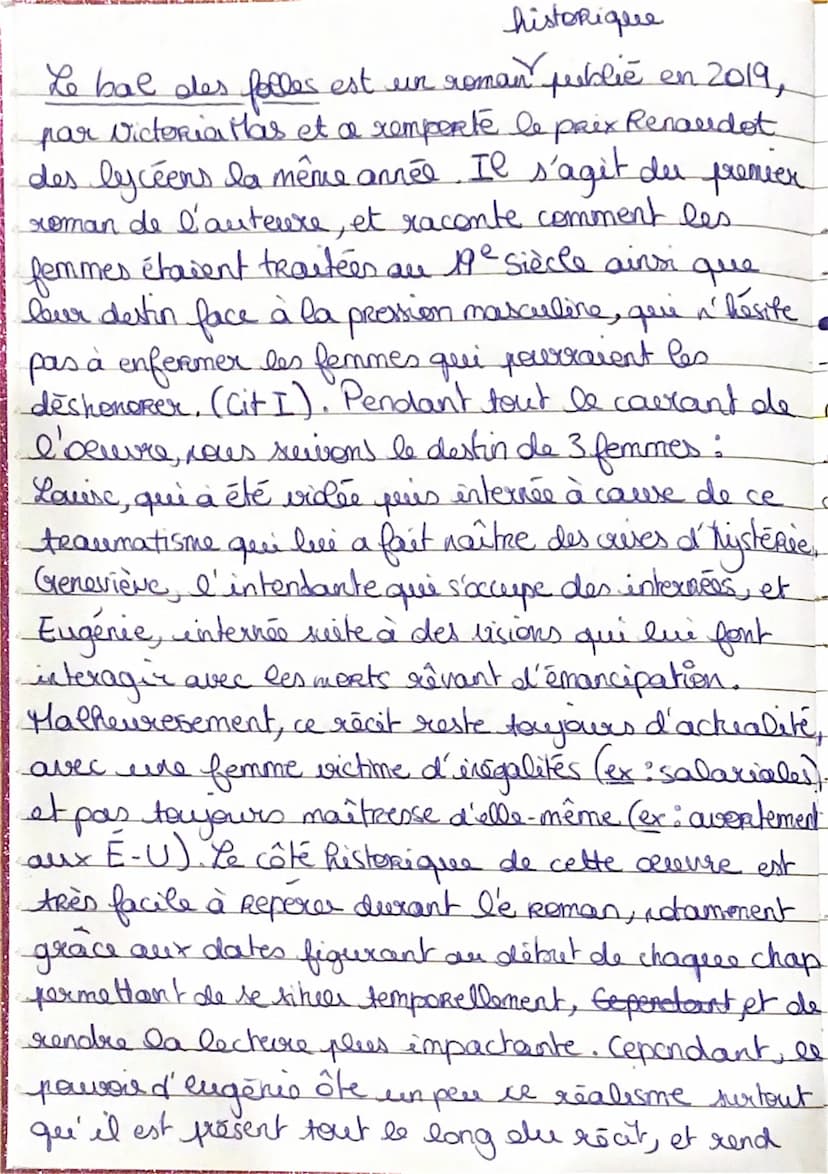 historique
Le bal des folles est un roman publié en 2019,
par Victoria Mas et a remporté le prix Renaudot
des lycéens la même année. Il s'agit du premier
roman de l'auteure, et raconte comment les
femmes étaient traitées au 19e siècle ainsi que
leur destin face à la pression masculine, qui n'hésite
pas à enfermer les femmes qui pourraient les
déshonorer. (Cit I). Pendant tout le courant de
l'oeuvre, nous suivons le destin de 3 femmes :
Louise, qui a été violée puis internée à cause de ce
traumatisme qui lui a fait naître des crises d'hystérie,
Geneviève, l'intendante qui s'occupe des internées, et
Eugénie, internée suite à des visions qui lui font
interagir avec les morts rêvant d'émancipation.
Malheureusement, ce récit reste toujours d'actualité,
avec une femme victime d'inégalités (ex : salariales),
et pas toujours maîtresse d'elle-même (ex : avortement
aux É-U). Le côté historique de cette oeuvre est
très facile à repérer durant le roman, notamment
grâce aux dates figurant au début de chaque chap
permettant de se situer temporellement, Cependant et de
rendre la lecture plus impactante. Cependant, le
pouvoir d'eugénie ôte un peu ce réalisme surtout
qu'il est présent tout le long du récit, et rend